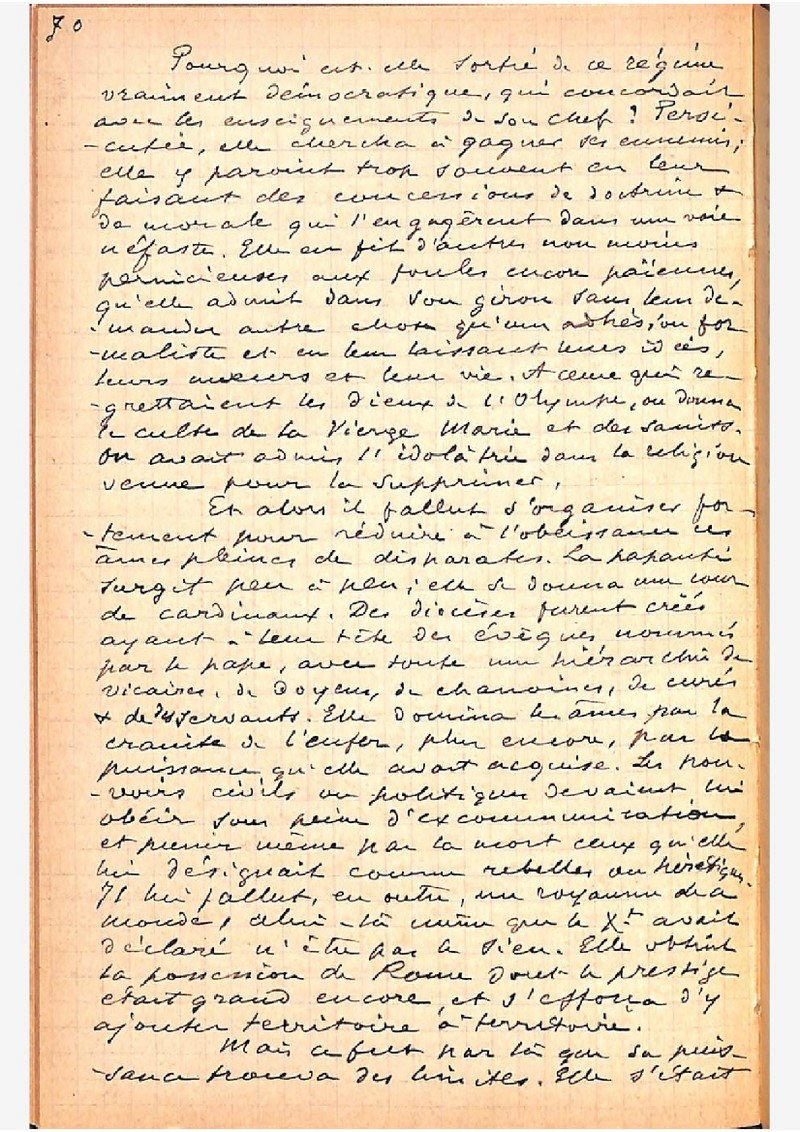 70
Pourquoi est-elle sortie de ce régime
vraiment démocratique, qui concordait
avec les enseignements de son chef ? Persé-
-cutée, elle chercha à gagner ses ennemis;
elle y parvint trop souvent en leur
faisant des concessions de doctrine &
de morale qui l'engagèrent dans une voie
néfaste. Elle en fit d'autres non moins
pernicieuses aux foules encore païennes,
qu'elle admit dans son giron sans leur de-
-mander autre chose qu'une adhésion for
-maliste et en leur laissant leurs idées,
leurs mœurs et leur vie. A ceux qui re-
-grettaient les Dieux de l'Olympe, on donna
le culte de la Vierge Marie et des saints.
On avait admis l'idolâtrie dans la religion
venue pour la supprimer.
Et alors il fallut s'organiser for-
-tement pour réduire à l'obéissance ces
âmes pleines de disparates. La papauté
surgit peu à peu; elle se donna une cour
de cardinaux. Des diocèses furent créés
ayant à leur tête des évêques nommés
par le pape, avec toute une hiérarchie de
vicaires, de Doyens, de chanoines, de curés
& de desservants. Elle domina les âmes par la
crainte de l'enfer, plus encore, par la
puissance qu'elle avait acquise. Les pou-
-voirs civils ou politiques devaient lui
obéir sous peine d'excommunication,
et punir même par la mort ceux qu'elle
lui désignait comme rebelles ou hérétiques.
Il lui fallut, en outre, un royaume de ce
monde, celui-là même que le Xt avait
déclaré n'être pas le sien. Elle obtint
la possession de Rome dont le prestige
était grand encore, et s'efforça d'y
ajouter territoire à territoire.
Mais ce fut par là que sa puis-
-sance trouva des limites. Elle s'était